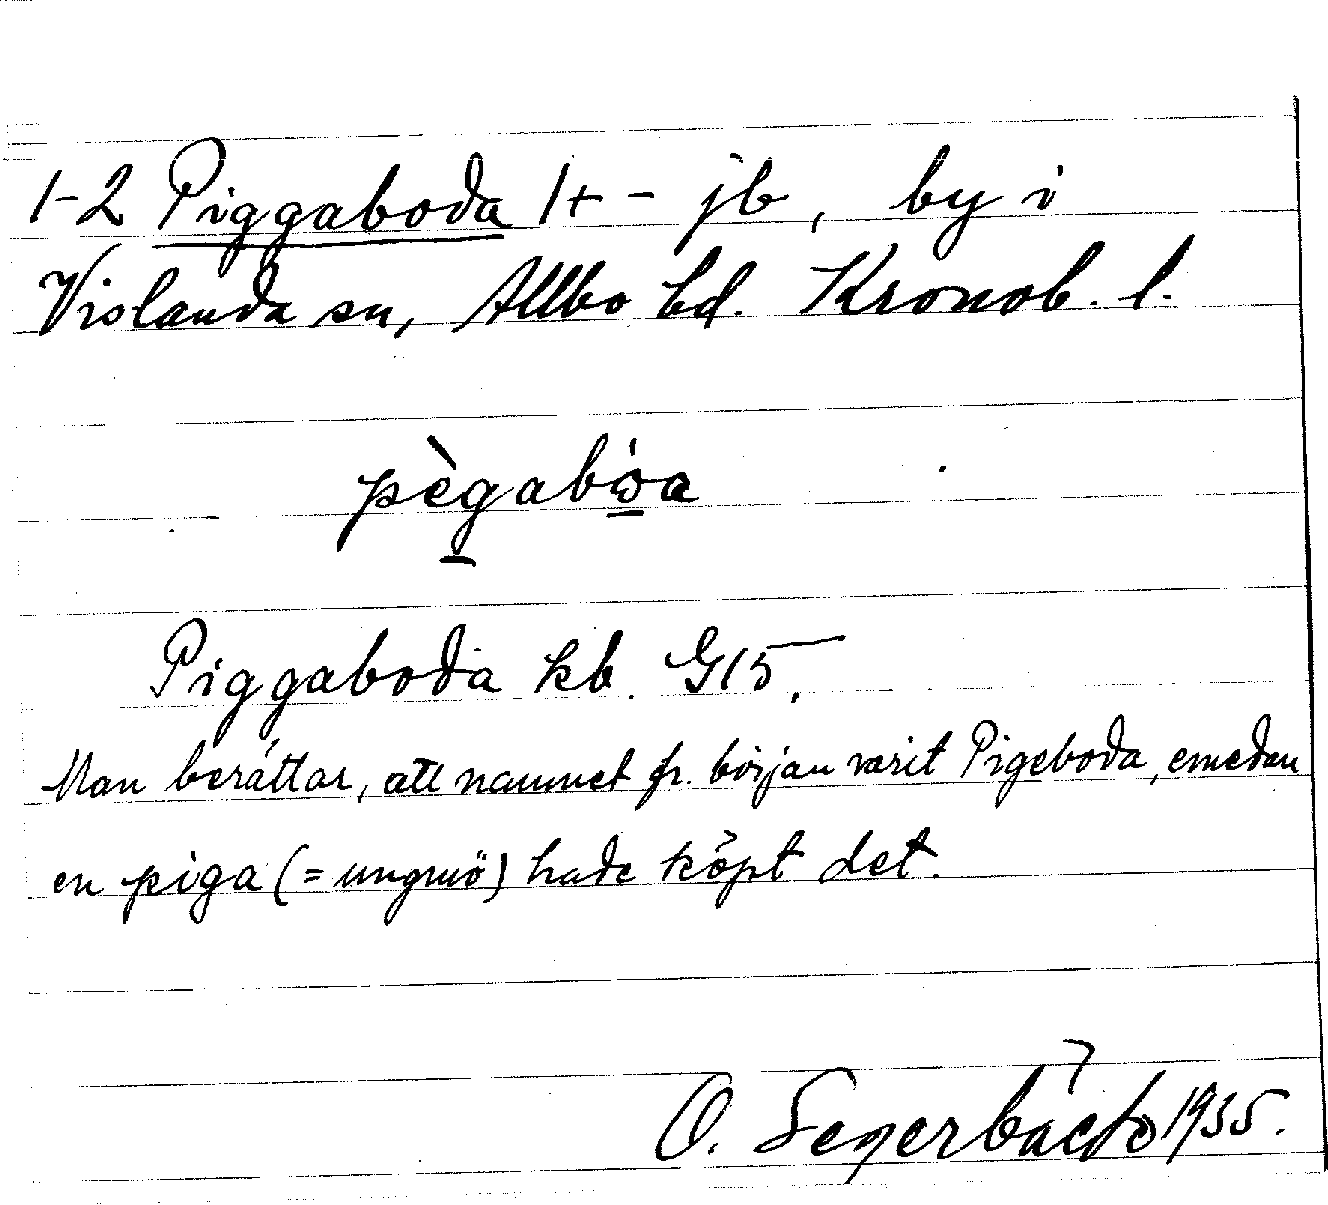 1-2 Piggaboda 1+ - jb, by i
Vislanda sn, Allbo hd. Kronob. l.
pègabωa
Piggaboda kb. G15.
Man berättar, att namnet fr. början varit Pigeboda, emedan
en piga (= ungmö) hade köpt det.
O. Segerbäck 1935.